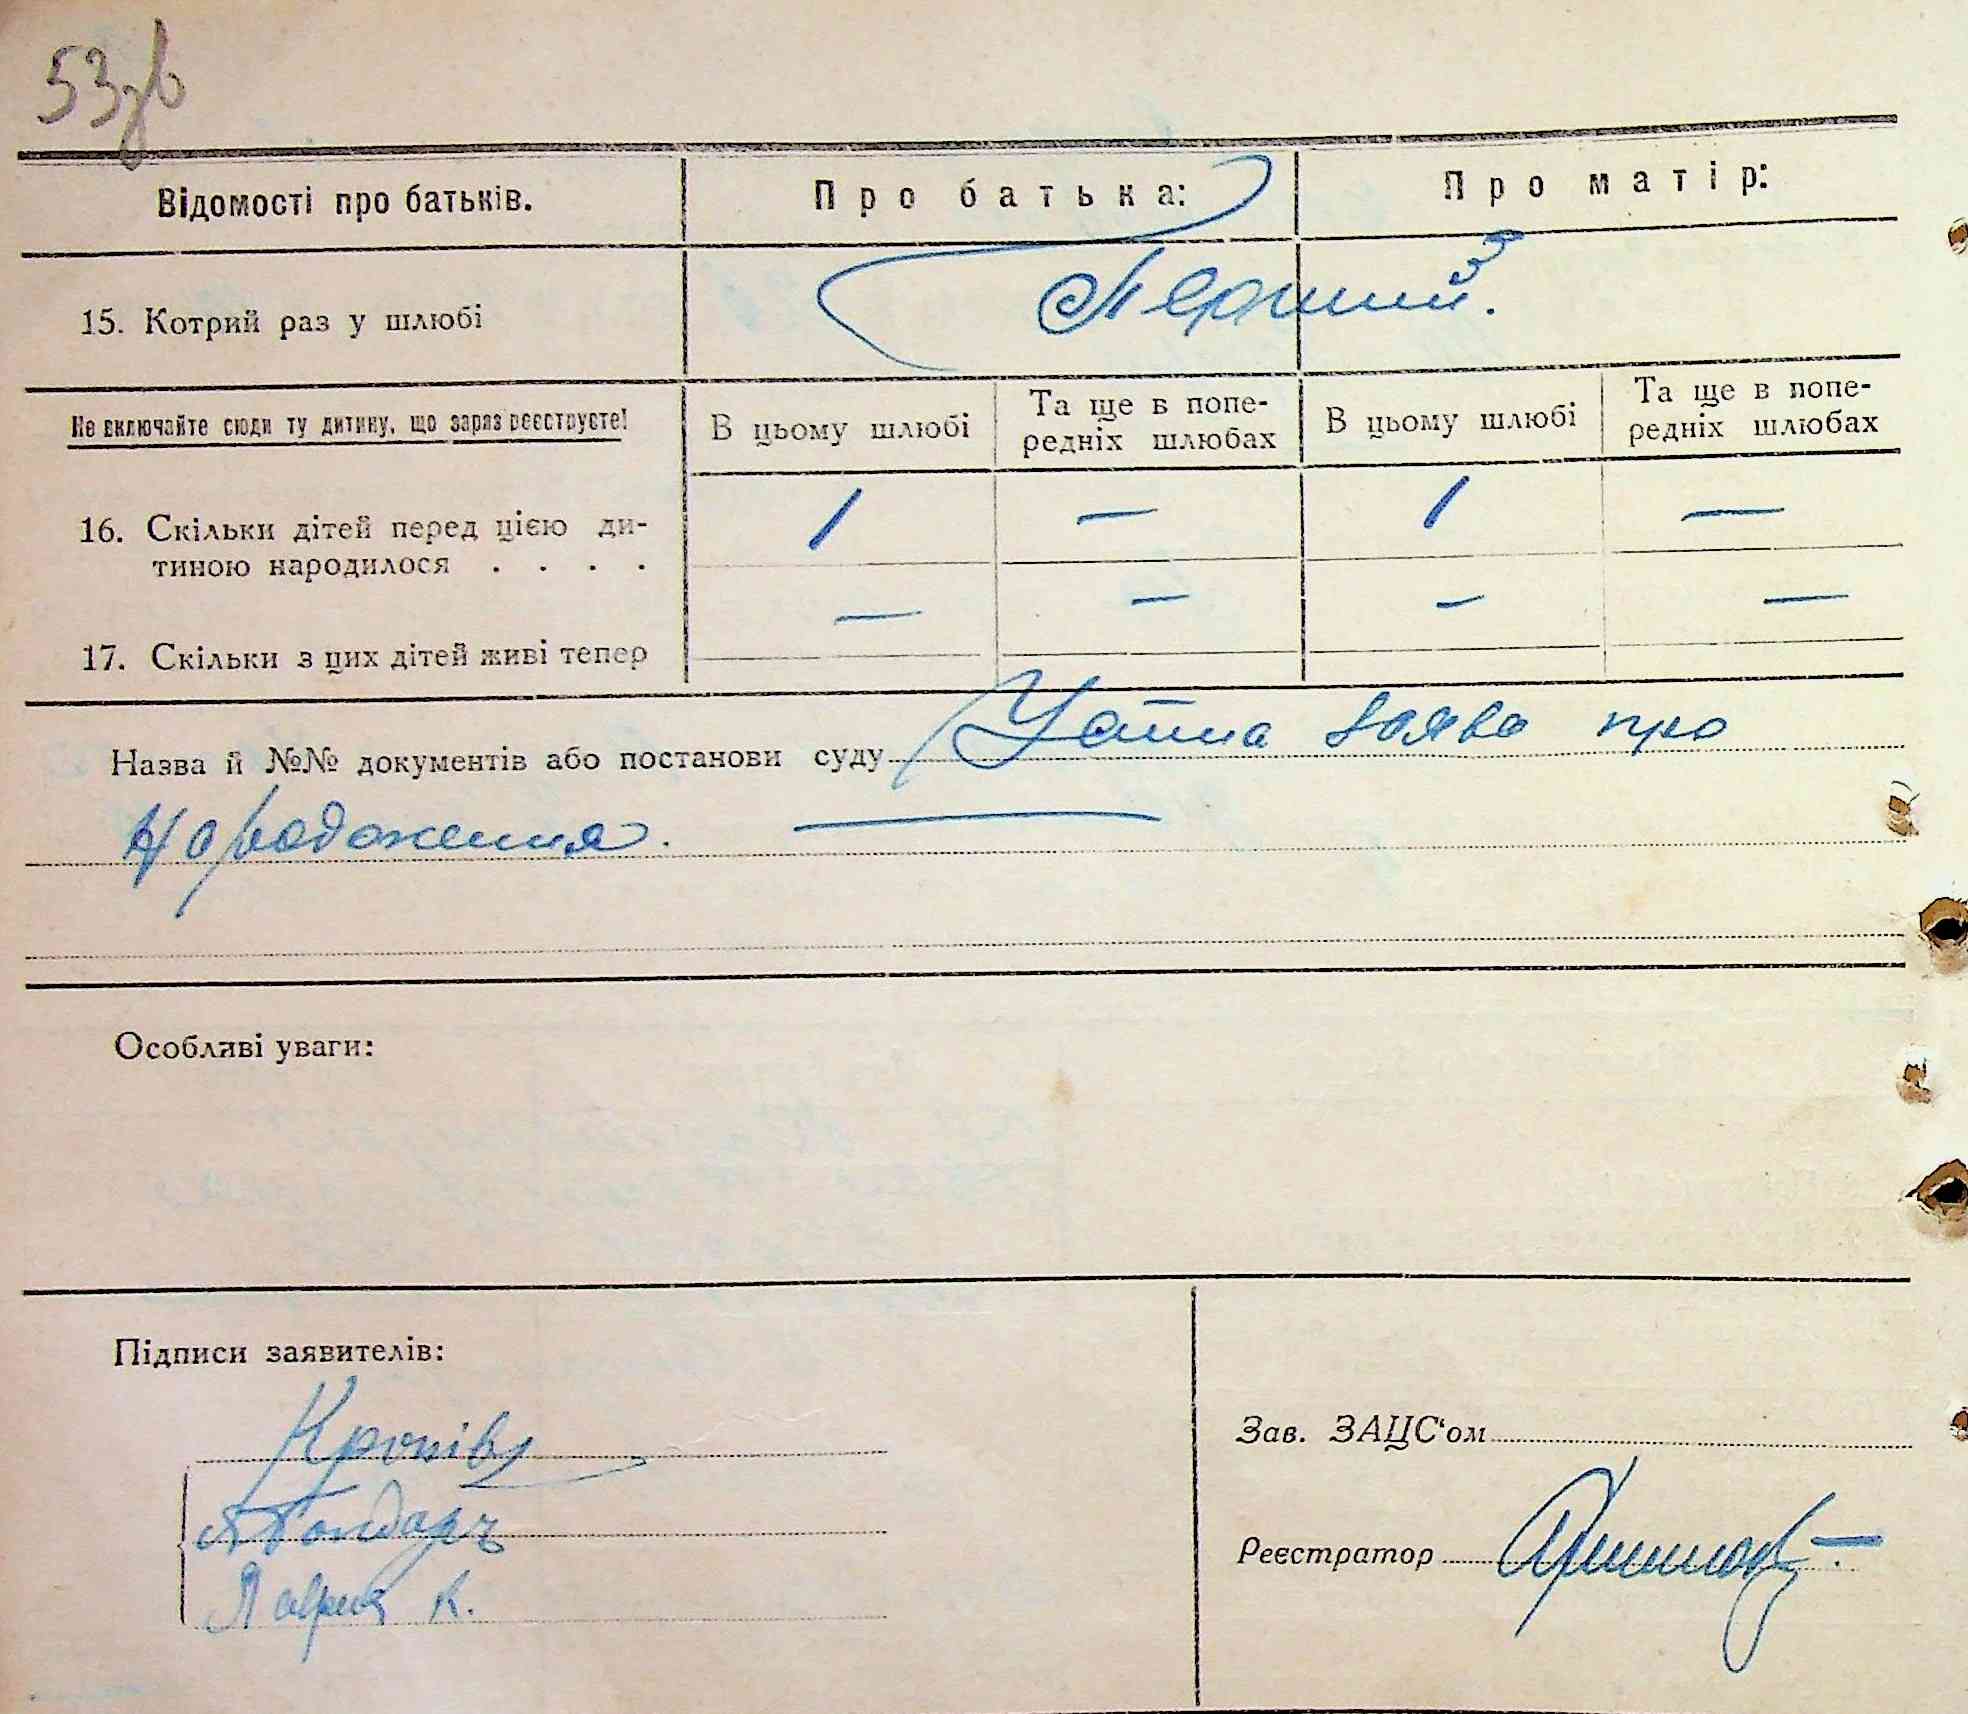 53зв
Відомості про батьків. Про батька: Про матір:
15. Котрий раз у шлюбі Перший.
Не включайте сюди ту дитину, що зараз реєструєте!
В цьому шлюбі Та ще в попе- В цьому шлюбі Та ще в попе-
редніх шлюбах редніх шлюбах
16. Скільки дітей перед цією ди- 1 — 1 —
тиною народилося . . . .
17. Скільки з цих дітей живі тепер — — — —
Назва й №№ документів або постанови суду Устна заява про
народження. —
Особливі уваги:
Підписи заявителів:
Зав. ЗАЦС'ом
Бондарь
Реєстратор
Лаврик К.